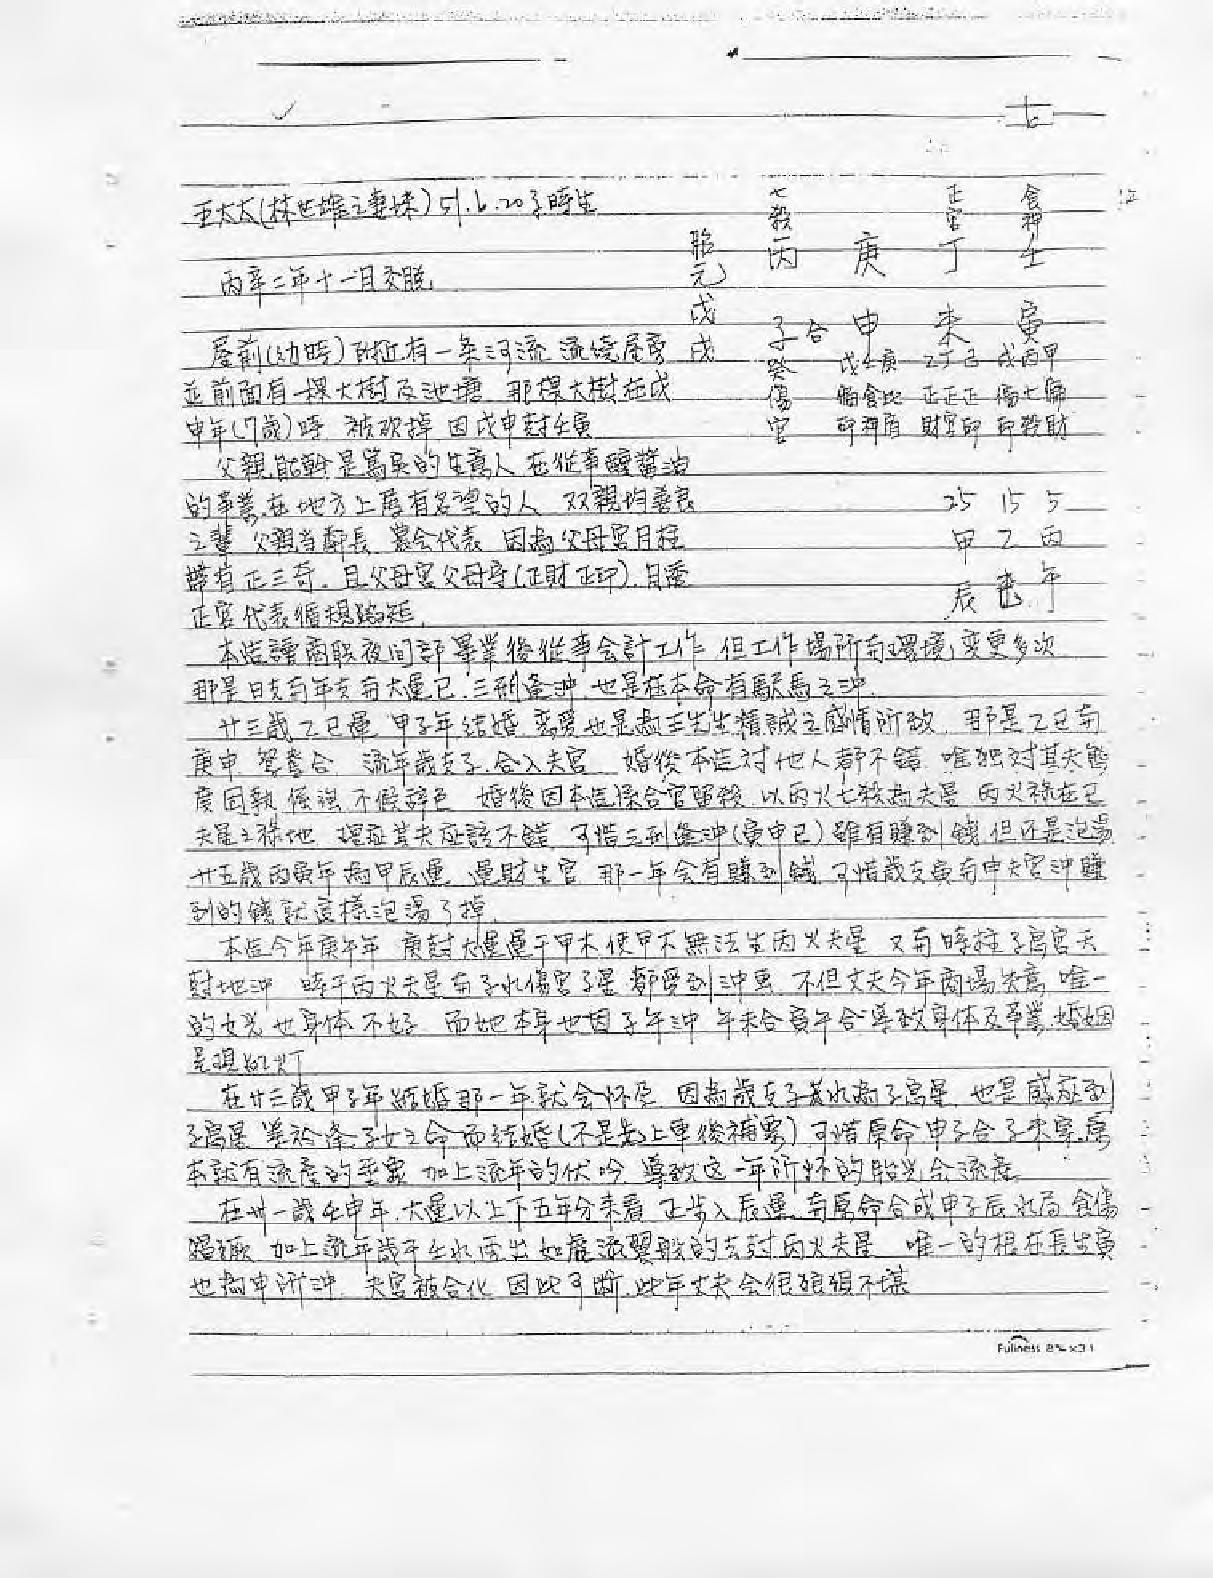 七
王太太(林世雄之妻妹)51.6.20子時生
七殺 正官 食神
胎元 丙 庚 丁 壬
丙辛二年十一月交脫,
戊戌 子合 申 未 寅
屋前(幼時)附近有一条河流 流繞屋旁
癸 戊壬庚 乙丁己 戊丙甲
並前面有一棵大樹及池塘 那棵大樹在戊
傷 偏食比 正正正 偏七偏
申年(7歲)時 被砍掉 因戊申尅壬寅
官 印神肩 財官印 印殺財
父親能幹是篤實的生意人 在從事釀醬油
的事業,在地方上屬有名望的人 双親均善良
25 15 5
之輩 父親当鄰長 農会代表 因為父母宮月柱
甲 乙 丙
帶有正三奇.且父母宮父母守(正財正印).月委
辰 巳 午
正官代表循規蹈矩.
本造讀商職夜間部畢業後從事会計工作 但工作場所與環境,変更多次
那是日支與年支與大運巳.三刑逢沖.也是在本命有馹馬之沖.
廿三歲乙巳運 甲子年結婚.恋愛也是為王先生精誠之感情所致 那是乙巳與
庚申 鴛鴦合 流年歲支子.合入夫宮 婚後本造対他人都不錯 唯独対其夫態
度固執 倔強 不假辞色 婚後因本造係合官留殺.以丙火七殺為夫星 丙火祿在巳
夫星之祿地 理應其夫應該不錯 可惜三刑逢沖(寅申巳)雖有賺到錢.但还是泡湯
廿五歲丙寅年 為甲辰運 運財生官 那一年会有賺到錢 可惜歲支寅與申夫宮沖賺
到的錢就這樣泡湯了掉.
本造今年庚午年 庚尅大運運干甲木.使甲木無法生丙火夫星 又與時柱子宮天
尅地沖 時干丙火夫星與子水傷官子星 都受到沖尅 不但丈夫今年商場失意 唯一
的女児也身体不好 而她本身也因子午沖 午未合寅午合導致身体及事業.婚姻
呈現紅灯
在廿三歲甲子年結婚那一年就会怀孕 因為歲支子癸水為子宮星 也是感应到
子宮星 等於奉子女之命而結婚(不是先上車後補票)可惜原命申子合子未穿.原
本就有流產的垂象 加上流年的伏吟 導致这一年所怀的胎児会流產
在卅一歲壬申年.大運以上下五年分来看 正步入辰運.與原命合成申子辰水局 食傷
過旺 加上流年歲干壬水透出如虎添翼般的去尅丙火夫星 唯一的根在長生寅
也為申所沖. 夫宮被合化 因此可断.此年丈夫会很狼狽不堪
Fullness